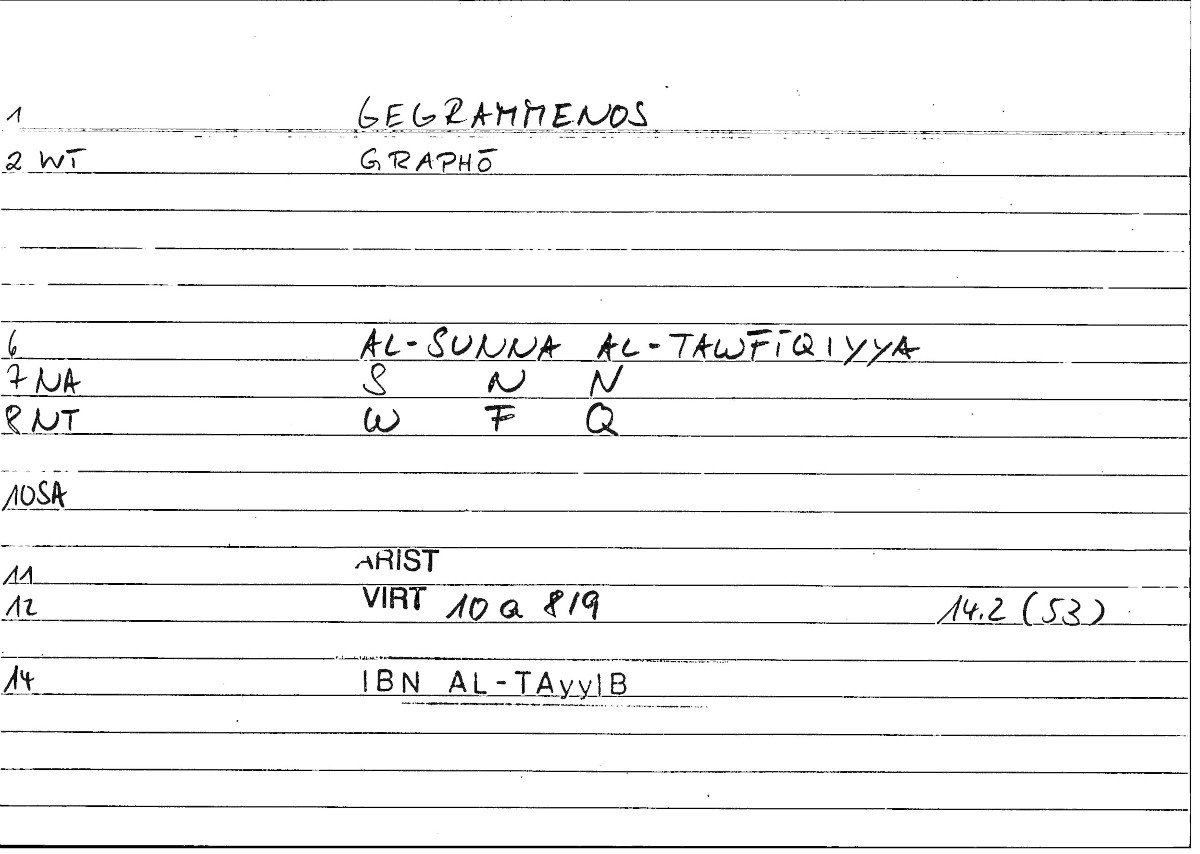 1 GEGRAMMENOS
2 WT GRAPHŌ
6 AL-SUNNA AL-TAWFĪQIYYA
7 NA S N N
8 NT W F Q
10 SA
11 ARIST
12 VIRT 10 a 8/9 14.2 (53)
14 IBN AL-TAyyIB